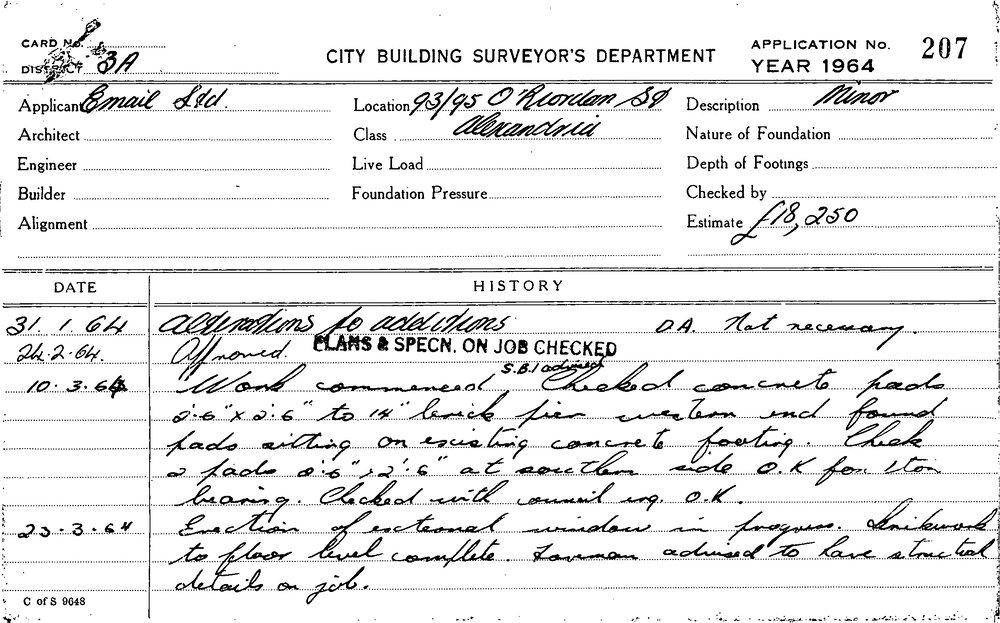 CARD No.
DISTRICT 3A
CITY BUILDING SURVEYOR'S DEPARTMENT
APPLICATION No. 207
YEAR 1964
Applicant Email Ltd.
Location 93/95 O'Riordan St
Alexandria
Description Minor
Architect
Class
Nature of Foundation
Engineer
Live Load
Depth of Footings
Builder
Foundation Pressure
Checked by
Alignment
Estimate £18,250
DATE
HISTORY
31.1.64 Alterations to additions D.A. Not necessary.
24.2.64. Approved. PLANS & SPECN. ON JOB CHECKED
10.3.64 Work commenced, S.B.I advised Checked concrete pads
2'.6" x 2'.6" to 14" brick pier western end found
pads sitting on existing concrete footing. Check
2 pads 2'.6" x 2'.6" at southern side O.K for 1 ton
bearing. Checked with council eng. O.K.
23.3.64 Erection of external window in progress. Brickwork
to floor level complete. Foreman advised to have structial
details on job.
C of S 9648